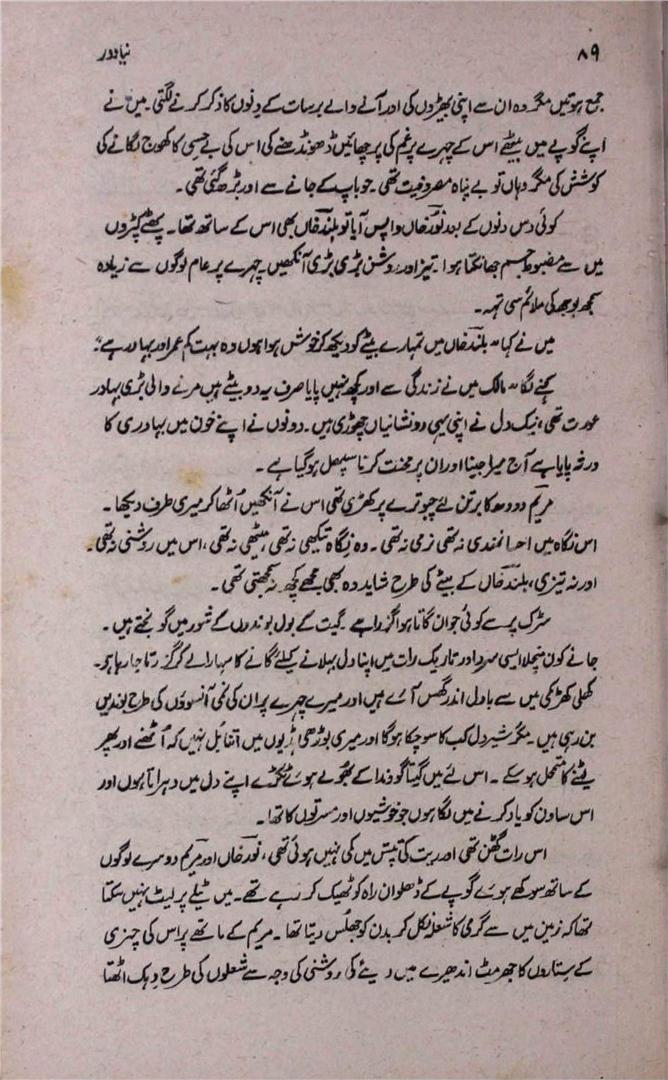 ۸۹
نیا دور
جمع ہوتیں مگر وہ ان سے اپنی بھیڑوں کی اور آنے والے برسات کے دنوں کا ذکر کرنے لگتی۔ میں نے
اپنے گوپے میں بیٹھے اس کے چہرے پر غم کی پرچھائیں ڈھونڈھنے کی اس کی بے حسی کا کھوج لگانے کی
کوشش کی مگر وہاں تو بے پناہ مصروفیت تھی۔ جو باپ کے جانے سے اور بڑھ گئی تھی۔
کوئی دس دنوں کے بعد نورخاں واپس آیا تو بلند خاں بھی اس کے ساتھ تھا۔ پھٹے کپڑوں
میں سے مضبوط جسم جھانکتا ہوا۔ تیز اور روشن بڑی بڑی آنکھیں۔ چہرے پر عام لوگوں سے زیادہ
سمجھ بوجھ کی ملائم سی تہہ۔
میں نے کہا "بلند خاں میں تمہارے بیٹے کو دیکھ کر خوش ہوا ہوں وہ بہت کم عمر اور بہادر ہے"
کہنے لگا "مالک میں نے زندگی سے اور کچھ نہیں پایا صرف یہ دو بیٹے ہیں مرنے والی بڑی بہادر
عورت تھی، نیک دل نے اپنی یہی دو نشانیاں چھوڑی ہیں۔ دونوں نے اپنے خون میں بہادری کا
ورثہ پایا ہے آج میرا جینا اور ان پر محنت کرنا سپھل ہو گیا ہے۔
مریم دودھ کا برتن لئے چبوترے پر کھڑی تھی اس نے آنکھیں اُٹھا کر میری طرف دیکھا۔
اس نگاہ میں احسانمندی نہ تھی نرمی نہ تھی۔ وہ نگاہ تیکھی نہ تھی، میٹھی نہ تھی، اس میں روشنی نہ تھی۔
اور نہ تیزی، بلند خاں کے بیٹے کی طرح شاید وہ بھی مجھے کچھ نہ سمجھتی تھی۔
سڑک پر سے کوئی جوان گاتا ہوا گزرا ہے۔ گیت کے بول بوندوں کے شور میں گونجتے ہیں۔
جانے کون منچلا ایسی سرد اور تاریک رات میں اپنا دل بہلانے کیلئے گانے کا سہارا لے کر گزرتا جا رہا ہو۔
کھلی کھڑکی میں سے بادل اندر گھس آئے ہیں اور میرے چہرے پر ان کی نمی آنسوؤں کی طرح بوندیں
بن رہی ہیں۔ مگر شیردل کب کا سو چکا ہوگا اور میری بوڑھی ہڈیوں میں اتنا بل نہیں کہ اُٹھنے اور پھر
لیٹنے کا متحمل ہو سکے۔ اس لئے میں گیتا گووندا کے بھولے ہوئے ٹکڑے اپنے دل میں دہراتا ہوں اور
اس ساون کو یاد کرنے میں لگا ہوں جو خوشیوں اور مسرتوں کا تھا۔
اس رات گھٹن تھی اور ریت کی تپش میں کمی نہیں ہوئی تھی، نورخاں اور مریم دوسرے لوگوں
کے ساتھ سوکھے ہوئے گوپے کے ڈھلوان راہ کو ٹھیک کر رہے تھے۔ میں ٹیلے پر لیٹ نہیں سکتا
تھا کہ زمین میں سے گرمی کا شعلہ نکل کر بدن کو جھلس دیتا تھا۔ مریم کے ماتھے پر اس کی چنری
کے ستاروں کا جھرمٹ اندھیرے میں دیئے کی روشنی کی وجہ سے شعلوں کی طرح دہک اٹھتا